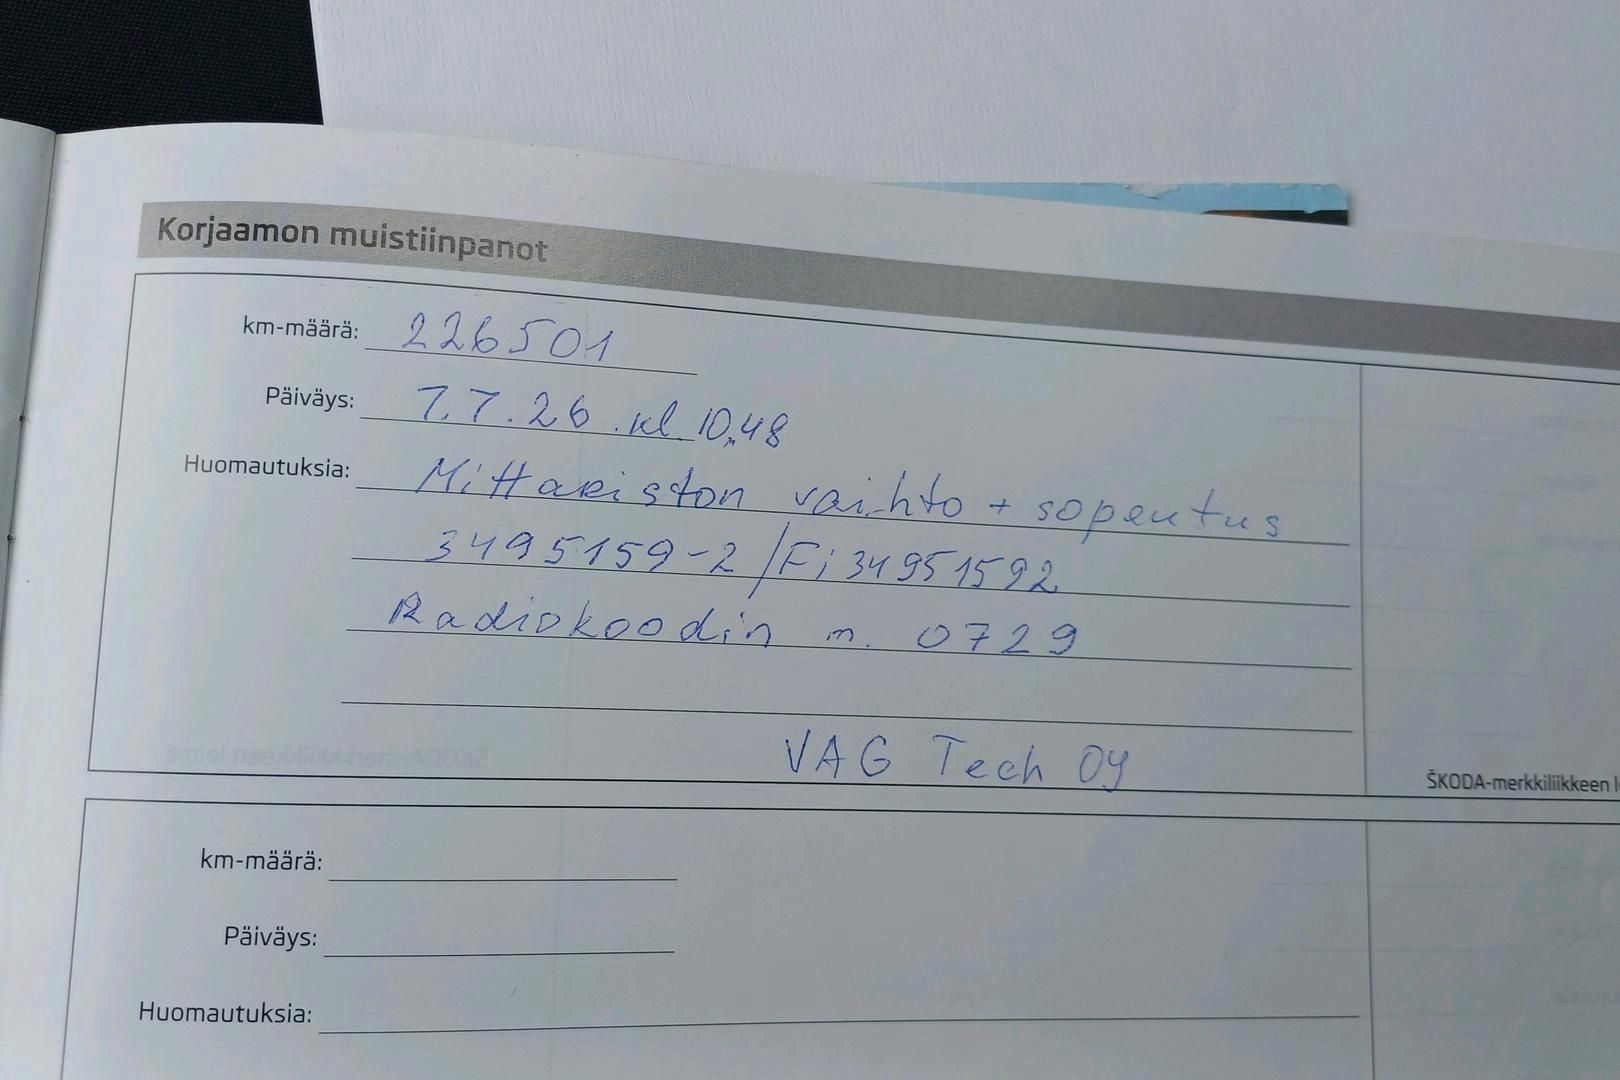 Korjaamon muistiinpanot
km-määrä: 226501
Päiväys: 7.7.26 .kl. 10.48
Huomautuksia: Mittariston vaihto + sopeutus
3495159-2/Fi34951592
Radiokoodin m. 0729
VAG Tech OY
ŠKODA-merkkiliikkeen
km-määrä:
Päiväys:
Huomautuksia: